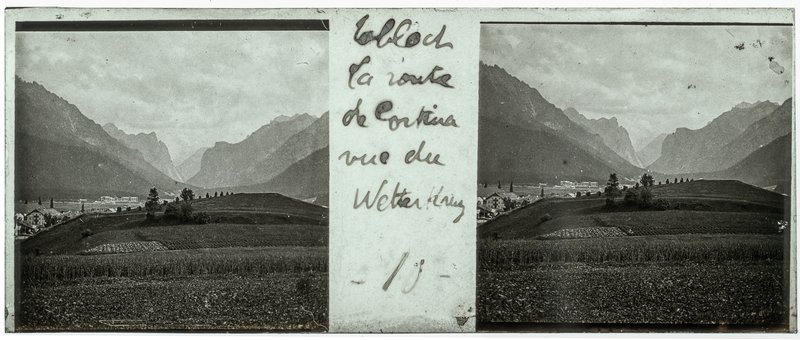 Toblach
la route
de Cortina
vue du
Wetterkreuz
- 13 -